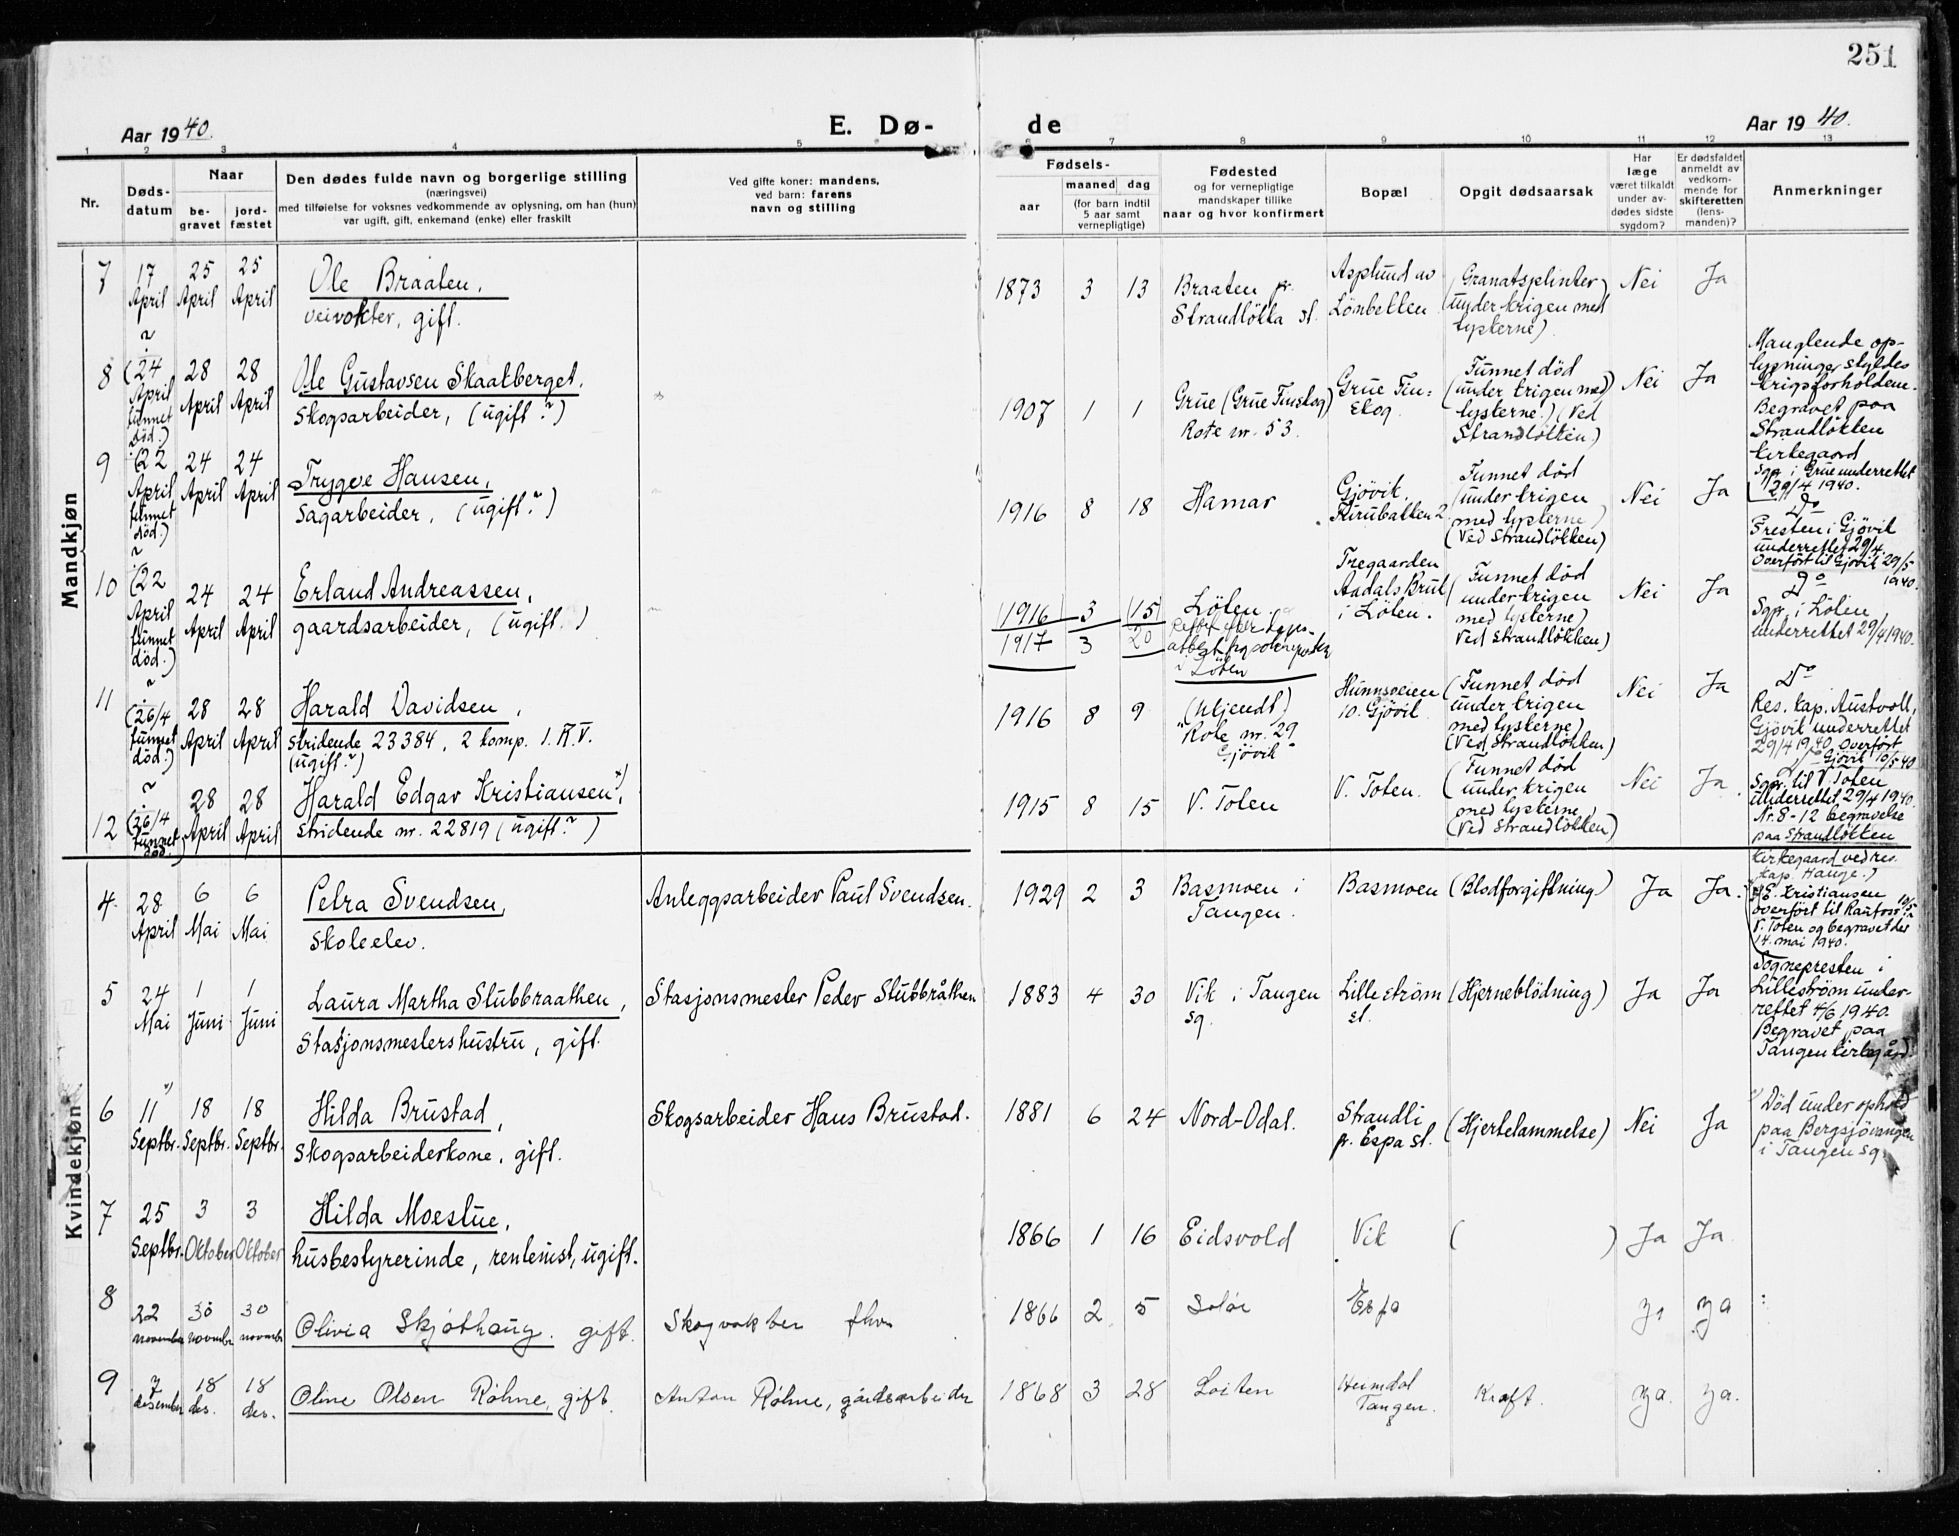 251
Aar 1940.
E. Dø-
de
Aar 1940.
1 2 3 4 5 6 7 8 9 10 11 12 13
Nr.
Døds-
datum
Naar
be-
gravet
jord-
fæstet
Den dødes fulde navn og borgerlige stilling
(næringsvei)
med tilføielse for voksnes vedkommende av oplysning, om han (hun)
var ugift, gift, enkemand (enke) eller fraskilt
Ved gifte koner: mandens,
ved barn: farens
navn og stilling
Fødsels-
aar
maaned
dag
(for barn indtil
5 aar samt
vernepligtige)
Fødested
og for vernepligtige
mandskaper tillike
naar og hvor konfirmert
Bopæl
Opgit dødsaarsak
Har
læge
været tilkaldt
under av-
dødes sidste
sygdom?
Er dødsfaldet
anmeldt av
vedkom-
mende for
skifteretten
(lens-
manden)?
Anmerkninger
Mandkjøn
7
17
April
25
April
25
April
Ole Braaten,
veivokter, gift.
1873 3 13
Braaten pr.
Strandløkka st.
Asplund av
Lønbekken
(Granatsplinter
under krigen med
tyskerne).
Nei
Ja
8
?
(24
April
funnet
død.)
28
April
28
April
Ole Gustavsen Skaatberget.
Skogsarbeider, (ugift?)
1907 1 1
Grue (Grue Finskog)
Rote nr. 53.
Grue Fin-
skog.
(Funnet død
under krigen med
tyskerne.) (Ved
Strandløkken.)
Nei
Ja
Manglende op-
lysninger skyldes
krigsforholdene.
Begravet paa
Strandløkken
kirkegaard
Sgp. i Grue underrettet
29/4 1940.
9
(22
April
funnet
død.)
24
April
24
April
Trygve Hansen,
Sagarbeider, (ugift?)
1916 8 18
Hamar
Gjövik.
Kirubakken 2
Funnet død
(under krigen
med tyskerne)
(Ved Strandløkken)
Nei
Ja
Do
Presten i Gjövik
underrettet 29/4.
Overført til Gjövik 29/5
1940.
10
?
(22
April
funnet
død.)
24
April
24
April
Erland Andreassen,
gaardsarbeider, (ugift.)
1916 3 15
1917 3 20
Löten.
i Löten
Tregaarden
Aadals Bruk
i Löten.
(Funnet død
under krigen
med tyskerne)
Ved Strandløkken)
Nei
Ja
Do
Sgp. i Löten
underrettet 29/4 1940.
11
?
(26/4
funnet
død.)
28
April
28
April
Harald Davidsen,
Stridende 23384, 2 komp. I.R.V.
(ugift?)
1916 8 9
(Ukjendt)
"Rote nr. 29
Gjövik"
Hunnsveien
10. Gjövik
(Funnet død
under krigen
med tyskerne)
(Ved Strandløkken)
Nei
Ja
Do
Res. kap. Austvoll,
Gjövik underrettet
29/4 1940. Overført
Gjövik 10/5 40
12
?
(26/4
funnet
død.)
28
April
28
April
Harald Edgar Kristiansen x),
Stridende nr. 22819 (ugift?)
1915 8 15
V. Toten
V. Toten.
(Funnet død
under krigen
med tyskerne)
(Ved Strandløkken)
Nei
Ja
Do
Sgpr. til V. Toten
underrettet 29/4 1940.
Nr. 8-12 begravelse
paa Strandløkken
kirkegaard ved res.
kap. Hauge.)
Kvindekjøn
4.
28
April
6
Mai
6
Mai
Petra Svendsen,
Skoleelev.
Anleggsarbeider Paul Svendsen.
1929 2 3
Basmoen i
Tangen.
Basmoen
(Blodforgiftning)
Ja
Ja.
E. Kristiansen
overført til Raufoss
V. Toten og begravet der
14. mai 1940.
5
24
Mai
1
Juni
1
Juni
Laura Martha Stubbraathen,
Stasjonsmestershustru, gift.
Stasjonsmester Peder Stubbråthen
1883 4 30
Vik i Tangen
sg.
Lillestrøm
st.
(Hjerneblødning)
Ja
Ja
Sognepresten i
Lillestrøm under-
rettet 4/6 1940.
Begravet paa
Tangen kirkegård.
6
11 x)
Septbr.
18
Septbr.
18
Septbr.
Hilda Brustad,
Skogsarbeiderkone, gift.
Skogsarbeider Hans Brustad.
1881 6 24
Nord-Odal.
Strandli
pr. Espa st.
(Hjertelammelse)
Nei
Ja
x) Død under ophold
paa Bergsjövangen
i Tangen sg.
7
25
Septbr.
3
Oktober
3
Oktober
Hilda Moestue,
husbestyrerinde, rentenist, ugift.
1866 1 16
Eidsvold
Vik
( )
Ja
Ja
8
22
november
30
novembr
30
novembr
Olivia Skjøthaug. gift.
Skogvokter fhv.
1866 2 5
Solør
Espa
Ja
Ja
9
7
desember
18
des.
18
des.
Oline Olsen Røhne, gift.
Anton Røhne, gårdsarbeider
1868 3 28
Løiten
Heimdal
Tangen.
Kreft.
Ja.
Ja.